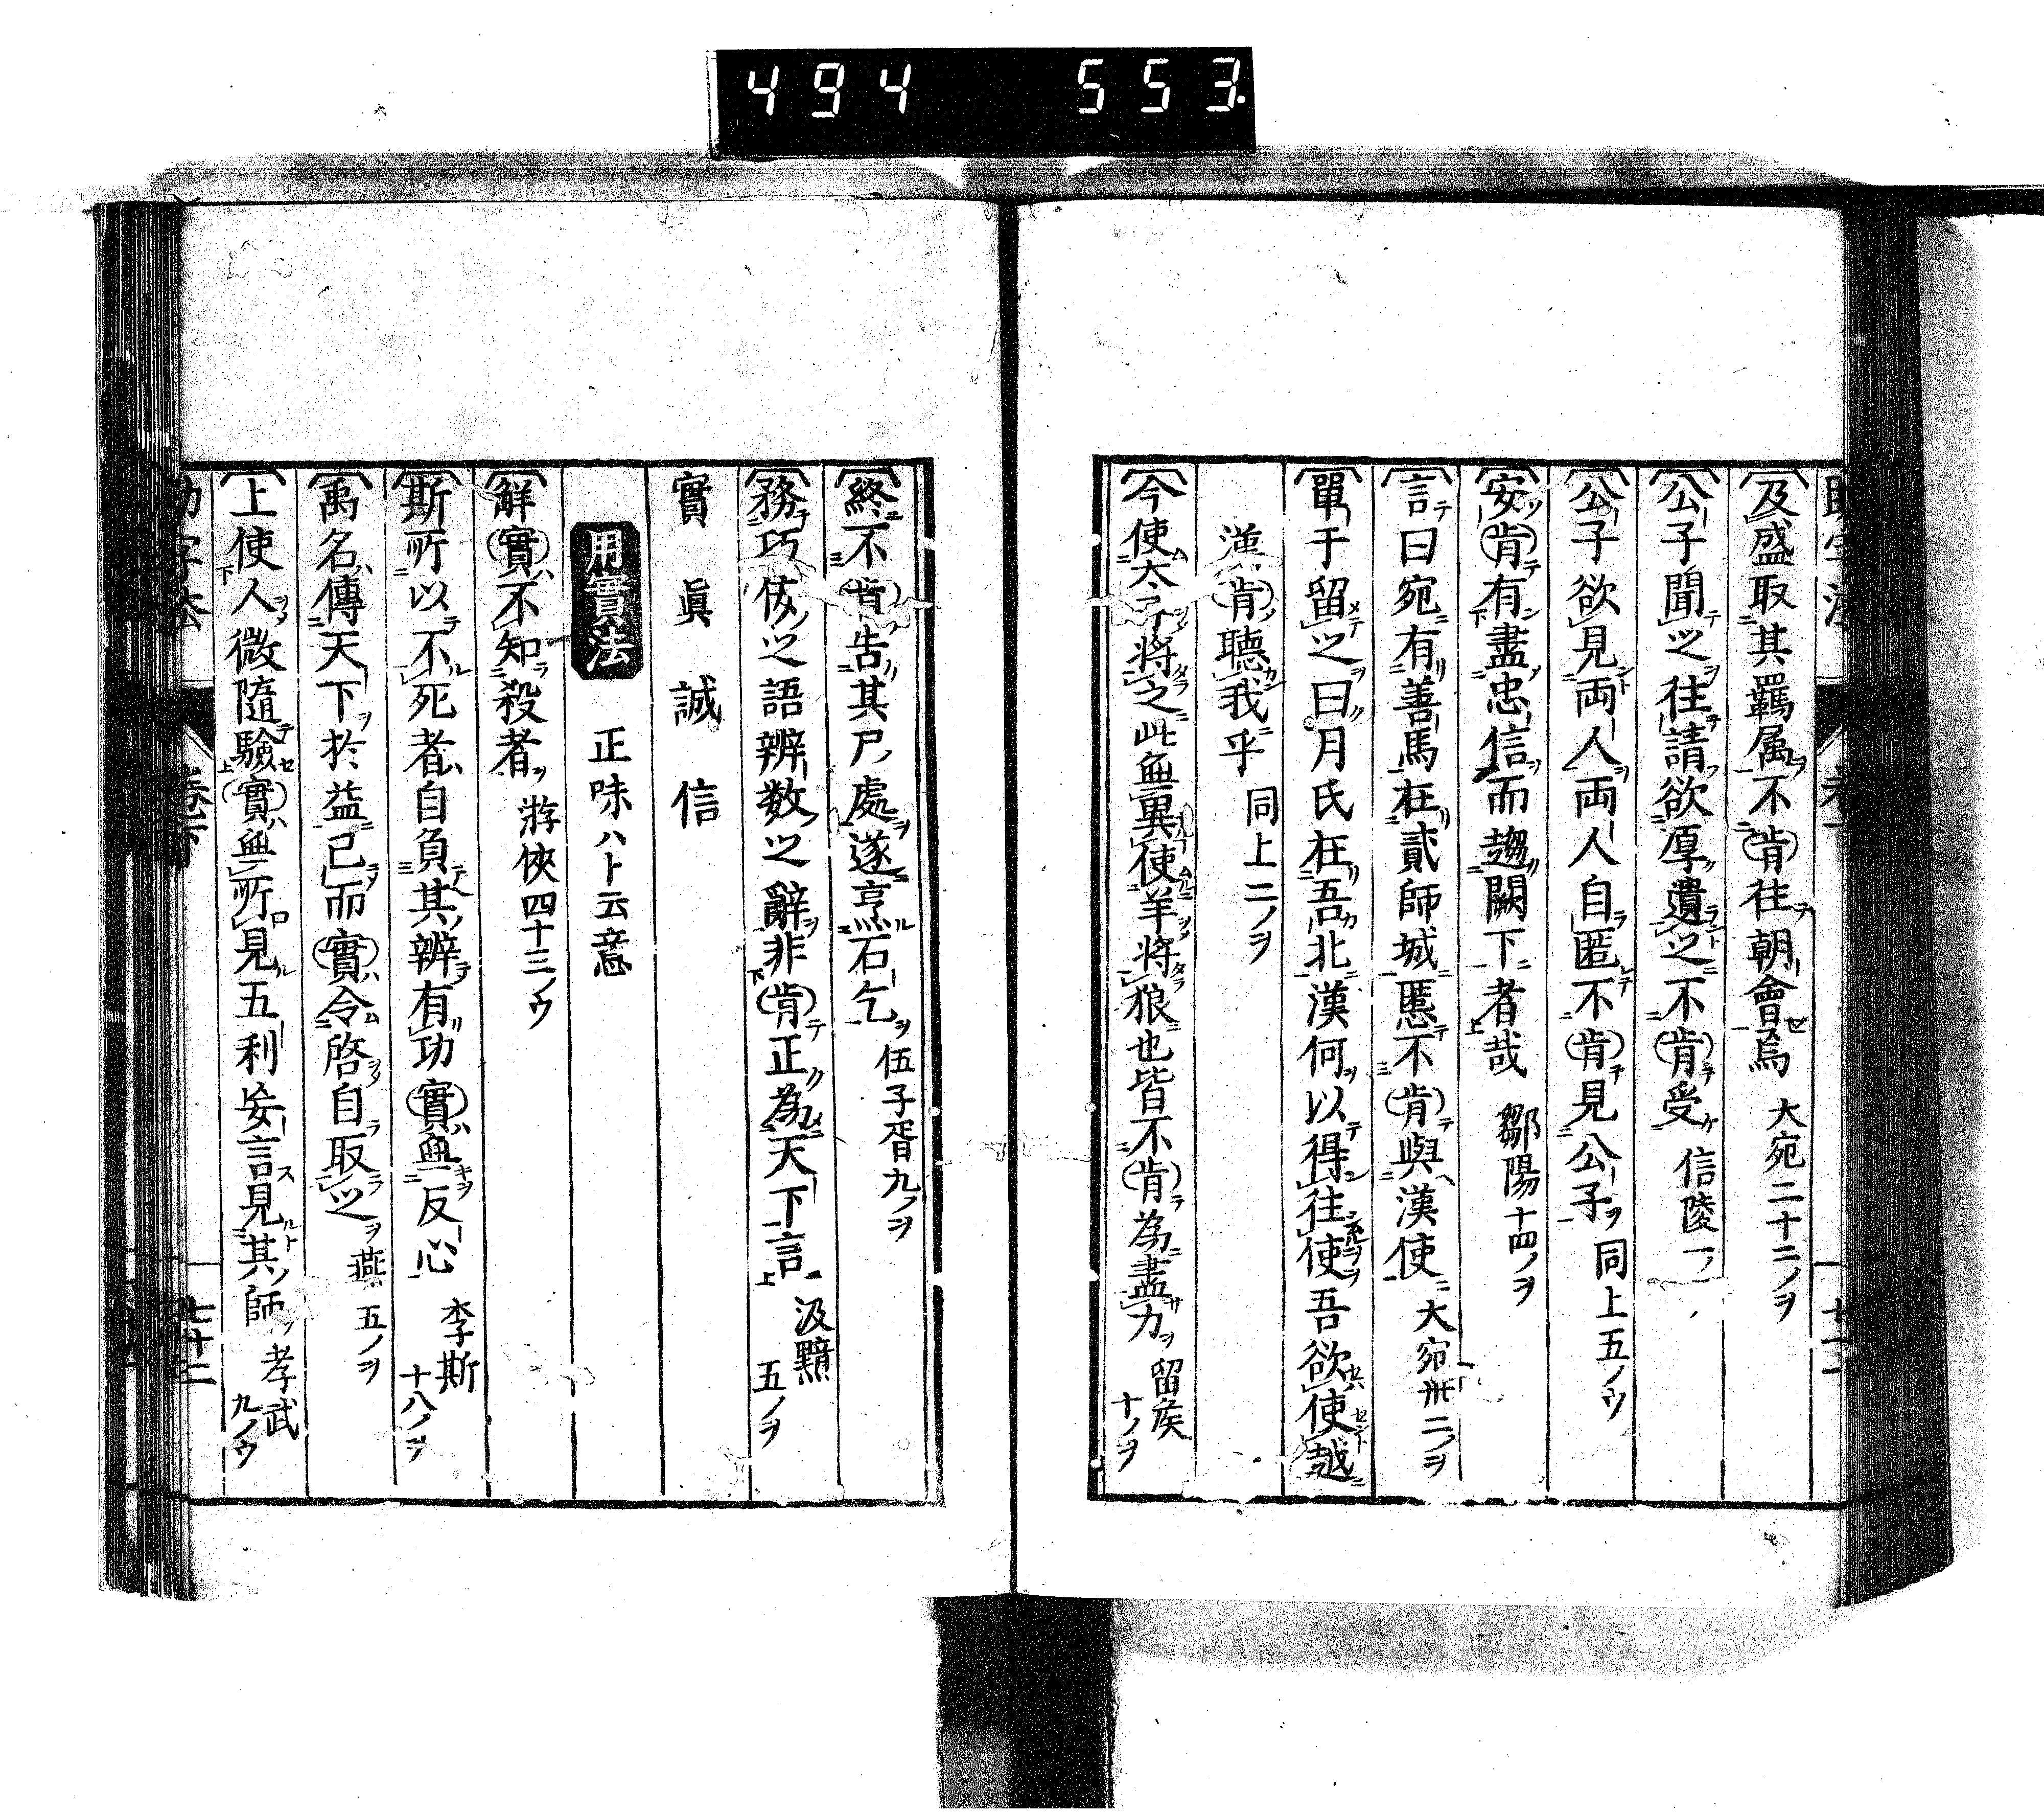 494 553.
及盛取其羈属不肯往朝會焉 大宛二十二ノヲ
公子聞之往請欲厚遺之不肯受 信陵一ノ
公子欲見両人両人自匿不肯見公子 同上五ノウ
安肯有盡忠信而趨闕下者哉 鄒陽十四ノヲ
言曰宛有善馬在貳師城匿不肯與漢使 大宛卅二ノヲ
單于留之曰月氏在吾北漢何以得往使吾欲使越
漢肯聽我乎 同上二ノヲ
今使太子將之此無異使羊將狼也皆不肯為盡力 留侯十ノヲ
終不肯告其尸處遂烹石乞 伍子胥九ノヲ
務巧佞之語辨数之辭非肯正為天下言 汲黯五ノヲ
實 眞 誠 信
用實法 正味ハト云意
解實不知殺者 游俠四十三ノウ
斯所以不死者自負其辨有功實無反心 李斯十八ノヲ
禹名傳天下於益已而實令啓自取之 燕五ノヲ
上使人微隨驗實無所見五利妄言見其師 孝武九ノウ
助字法 卷下 七十二